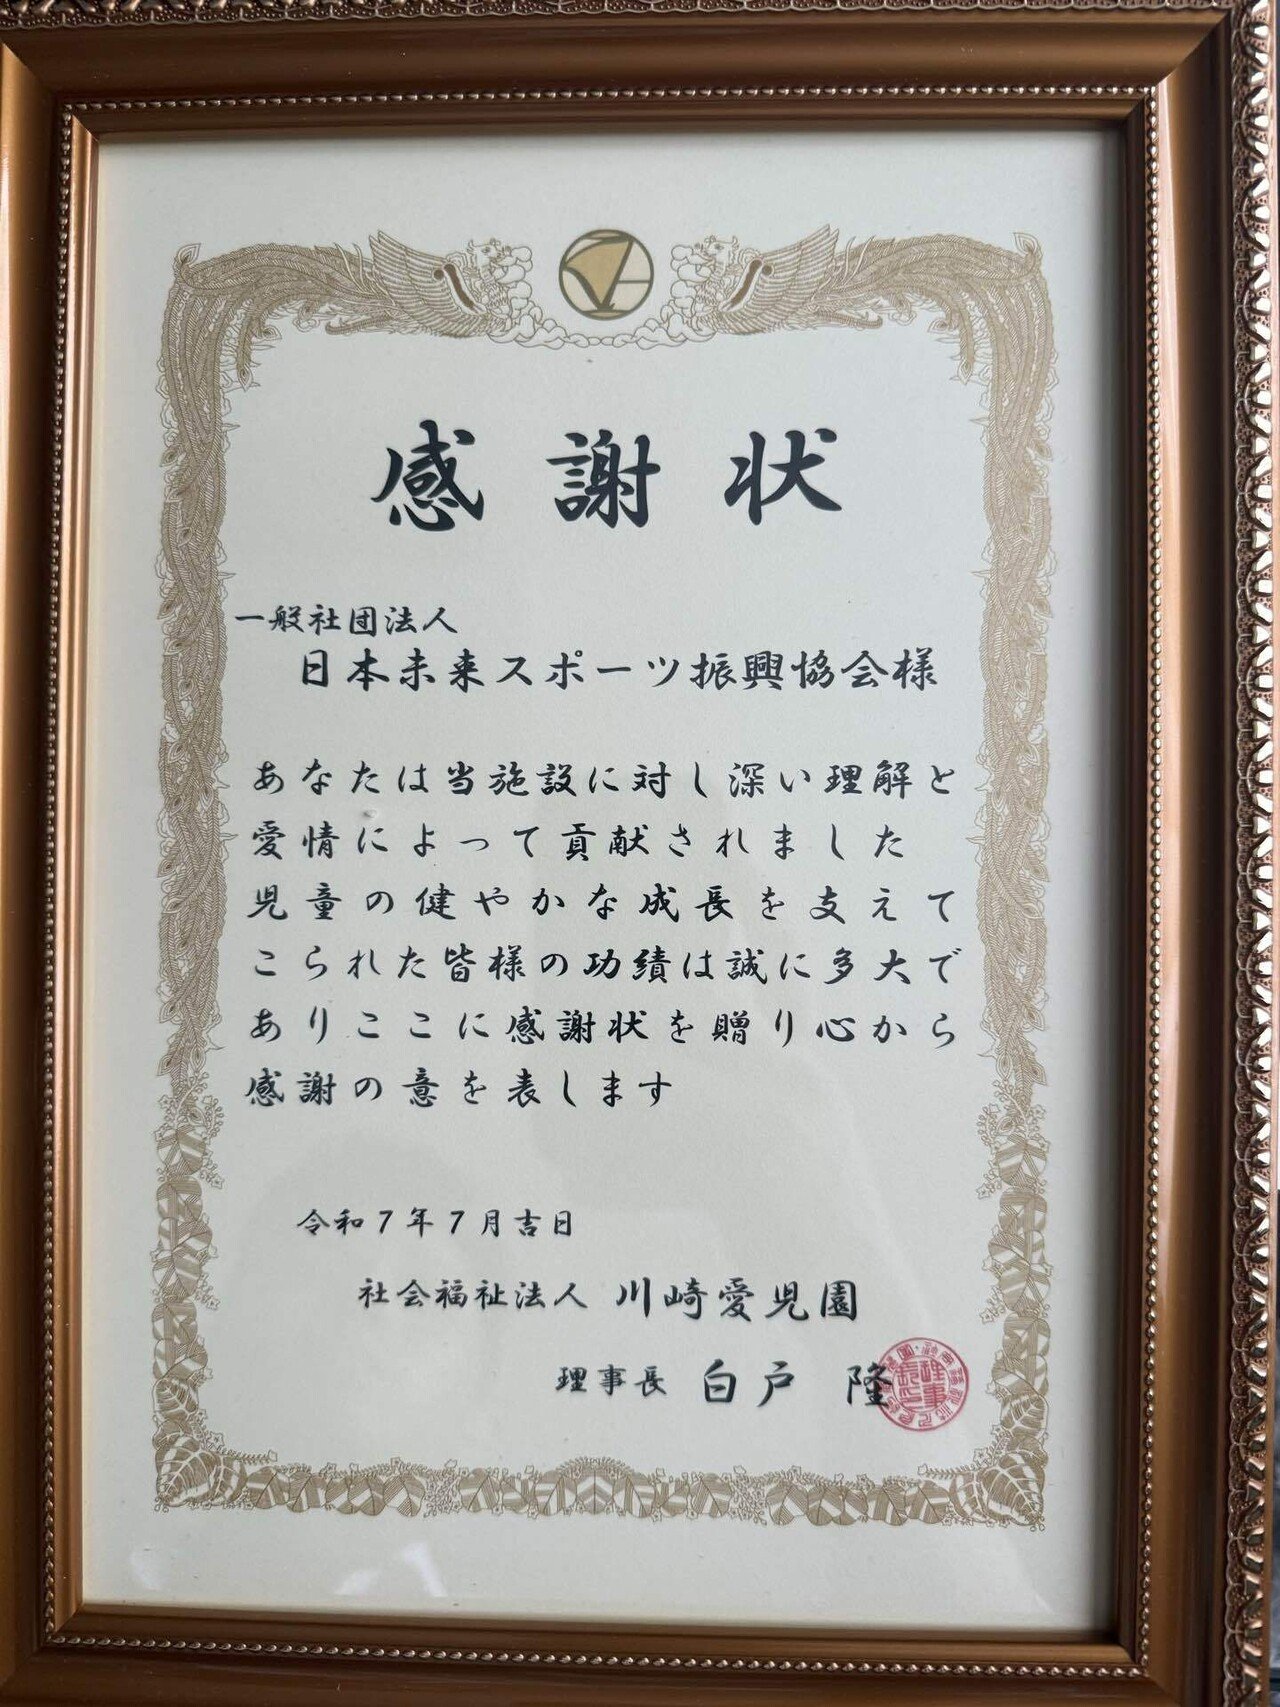 感謝状
一般社団法人
日本未来スポーツ振興協会様
あなたは当施設に対し深い理解と
愛情によって貢献されました
児童の健やかな成長を支えて
こられた皆様の功績は誠に多大で
ありここに感謝状を贈り心から
感謝の意を表します
令和7年7月吉日
社会福祉法人 川崎愛児園
理事長 白戸 隆